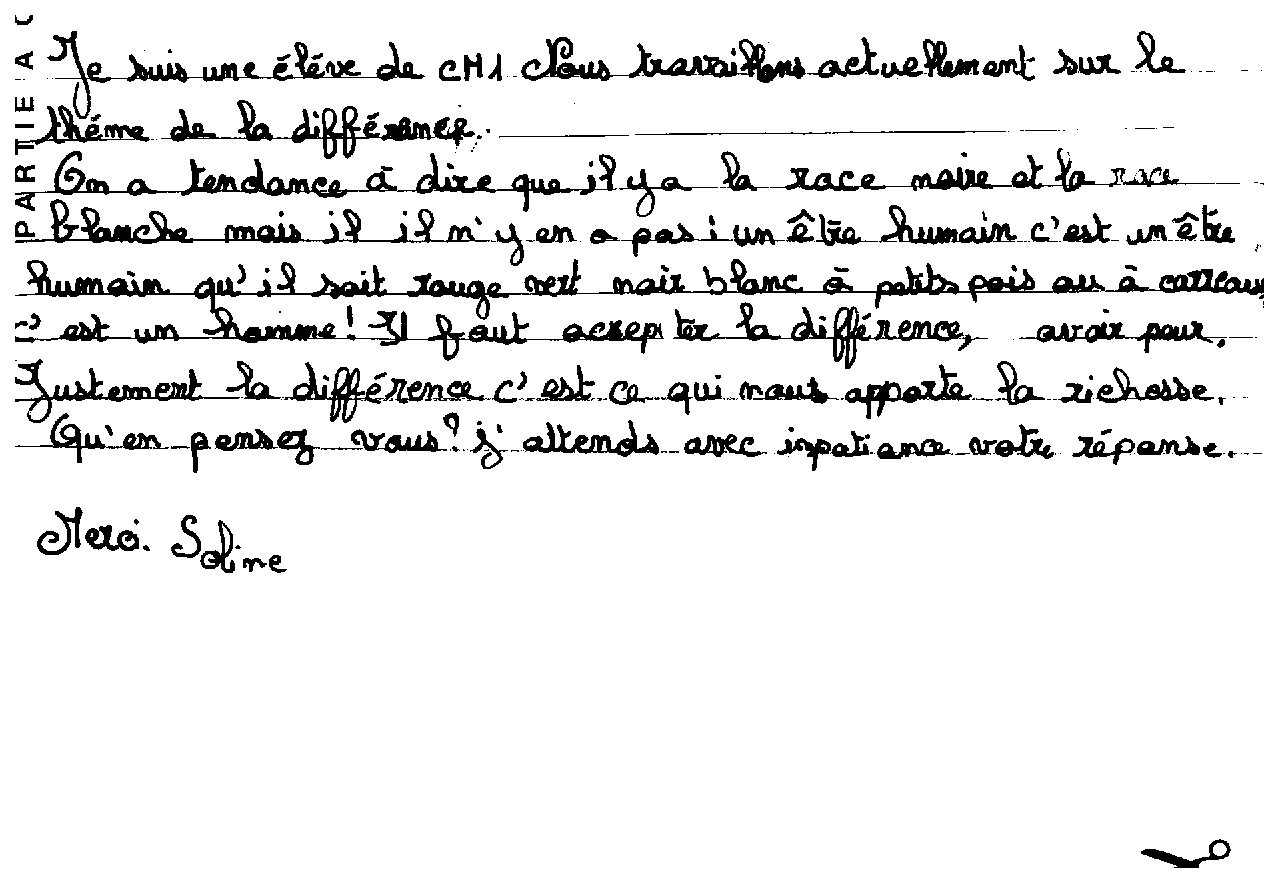 PARTIE A C
Je suis une éléve de CM1 Nous travaillons actuellement sur le
théme de la différence.
On a tendance à dire que il y a la race noire et la race
blanche mais il il n'y en a pas : un être humain c'est un être
humain qu'il soit rouge vert noir blanc à petits pois ou à carreaux
c'est un homme! Il faut accepter la différence, avoir peur.
Justement la différence c'est ce qui nous apporte la richesse.
Qu'en pensez vous? j'attends avec inpatiance votre réponse.
Merci. Soline